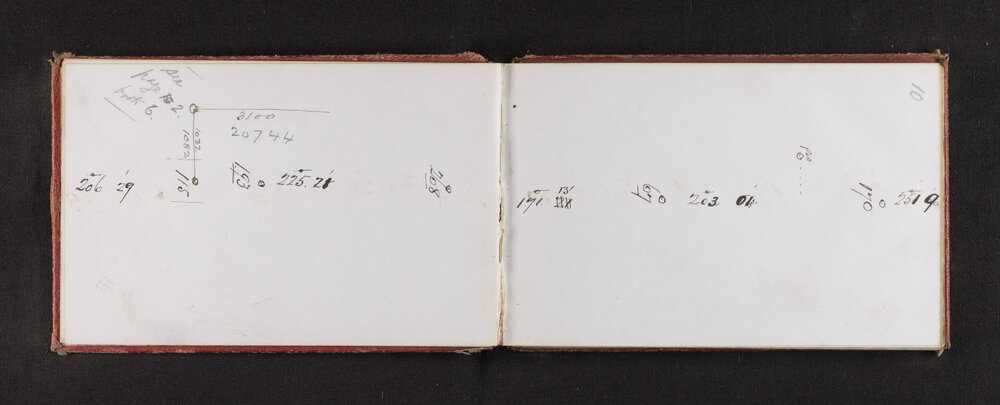 see
page 2.
book 6.
3100
20744
1082
1082
206° 29'
115
193
225° 21'
208
10
171° 13'
67
203° 04'
170
251° 9'